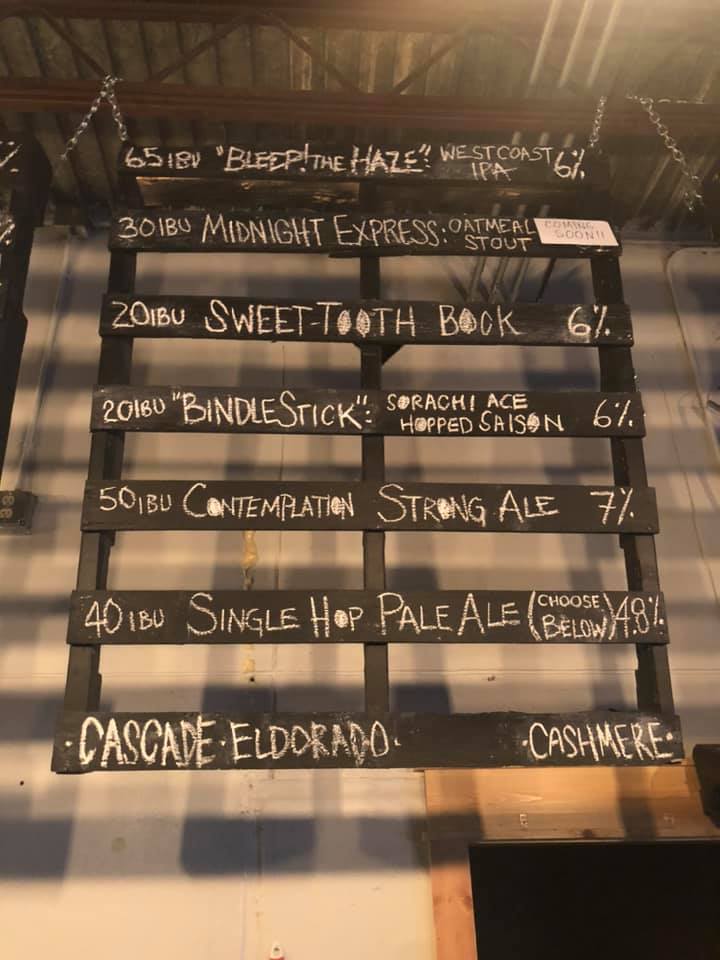 65 IBU "BLEEP! THE HAZE" WEST COAST IPA 6%
30 IBU MIDNIGHT EXPRESS: OATMEAL STOUT COMING SOON!!
20 IBU SWEET-TOOTH BOCK 6%
20 IBU "BINDLESTICK": SORACHI ACE HOPPED SAISON 6%
50 IBU CONTEMPLATION STRONG ALE 7%
40 IBU SINGLE HOP PALE ALE (CHOOSE BELOW) 4.8%
·CASCADE·ELDORADO· ·CASHMERE·